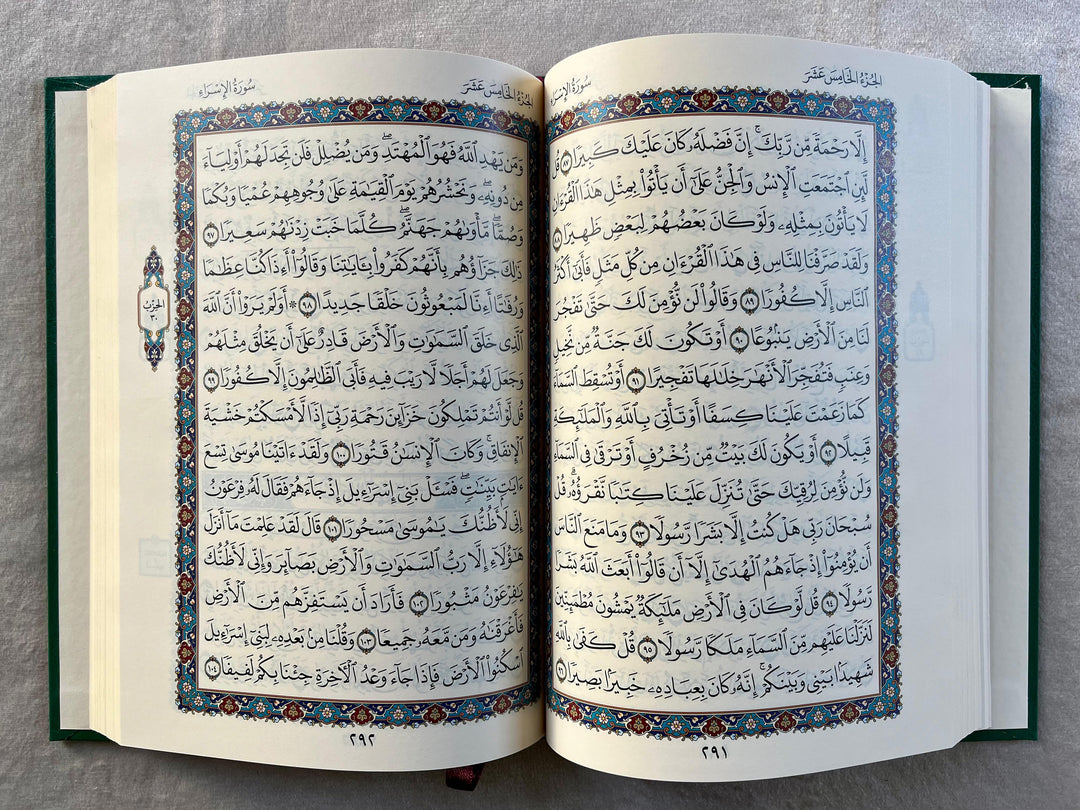 الجزء الخامس عشر
سورة الإسراء
إِلَّا رَحْمَةً مِّن رَّبِّكَ ۚ إِنَّ فَضْلَهُۥ كَانَ عَلَيْكَ كَبِيرًا ٨٧ قُل
لَّئِنِ ٱجْتَمَعَتِ ٱلْإِنسُ وَٱلْجِنُّ عَلَىٰٓ أَن يَأْتُوا۟ بِمِثْلِ هَٰذَا ٱلْقُرْءَانِ
لَا يَأْتُونَ بِمِثْلِهِۦ وَلَوْ كَانَ بَعْضُهُمْ لِبَعْضٍ ظَهِيرًا ٨٨
وَلَقَدْ صَرَّفْنَا لِلنَّاسِ فِى هَٰذَا ٱلْقُرْءَانِ مِن كُلِّ مَثَلٍ فَأَبَىٰٓ أَكْثَرُ
ٱلنَّاسِ إِلَّا كُفُورًا ٨٩ وَقَالُوا۟ لَن نُّؤْمِنَ لَكَ حَتَّىٰ تَفْجُرَ
لَنَا مِنَ ٱلْأَرْضِ يَنۢبُوعًا ٩٠ أَوْ تَكُونَ لَكَ جَنَّةٌ مِّن نَّخِيلٍ
وَعِنَبٍ فَتُفَجِّرَ ٱلْأَنْهَٰرَ خِلَٰلَهَا تَفْجِيرًا ٩١ أَوْ تُسْقِطَ ٱلسَّمَآءَ
كَمَا زَعَمْتَ عَلَيْنَا كِسَفًا أَوْ تَأْتِىَ بِٱللَّهِ وَٱلْمَلَٰٓئِكَةِ
قَبِيلًا ٩٢ أَوْ يَكُونَ لَكَ بَيْتٌ مِّن زُخْرُفٍ أَوْ تَرْقَىٰ فِى ٱلسَّمَآءِ
وَلَن نُّؤْمِنَ لِرُقِيِّكَ حَتَّىٰ تُنَزِّلَ عَلَيْنَا كِتَٰبًا نَّقْرَؤُهُۥ ۗ قُلْ
سُبْحَانَ رَبِّى هَلْ كُنتُ إِلَّا بَشَرًا رَّسُولًا ٩٣ وَمَا مَنَعَ ٱلنَّاسَ
أَن يُؤْمِنُوٓا۟ إِذْ جَآءَهُمُ ٱلْهُدَىٰٓ إِلَّآ أَن قَالُوٓا۟ أَبَعَثَ ٱللَّهُ بَشَرًا
رَّسُولًا ٩٤ قُل لَّوْ كَانَ فِى ٱلْأَرْضِ مَلَٰٓئِكَةٌ يَمْشُونَ مُطْمَئِنِّينَ
لَنَزَّلْنَا عَلَيْهِم مِّنَ ٱلسَّمَآءِ مَلَكًا رَّسُولًا ٩٥ قُلْ كَفَىٰ بِٱللَّهِ
شَهِيدًۢا بَيْنِى وَبَيْنَكُمْ ۚ إِنَّهُۥ كَانَ بِعِبَادِهِۦ خَبِيرًۢا بَصِيرًا ٩٦
٢٩١
الجزء الخامس عشر
سورة الإسراء
وَمَن يَهْدِ ٱللَّهُ فَهُوَ ٱلْمُهْتَدِ ۖ وَمَن يُضْلِلْ فَلَن تَجِدَ لَهُمْ أَوْلِيَآءَ
مِن دُونِهِۦ ۖ وَنَحْشُرُهُمْ يَوْمَ ٱلْقِيَٰمَةِ عَلَىٰ وُجُوهِهِمْ عُمْيًا وَبُكْمًا
وَصُمًّا ۖ مَّأْوَىٰهُمْ جَهَنَّمُ ۖ كُلَّمَا خَبَتْ زِدْنَٰهُمْ سَعِيرًا ٩٧
ذَٰلِكَ جَزَآؤُهُم بِأَنَّهُمْ كَفَرُوا۟ بِـَٔايَٰتِنَا وَقَالُوٓا۟ أَءِذَا كُنَّا عِظَٰمًا
وَرُفَٰتًا أَءِنَّا لَمَبْعُوثُونَ خَلْقًا جَدِيدًا ٩٨ ۞ أَوَلَمْ يَرَوْا۟ أَنَّ ٱللَّهَ
ٱلَّذِى خَلَقَ ٱلسَّمَٰوَٰتِ وَٱلْأَرْضَ قَادِرٌ عَلَىٰٓ أَن يَخْلُقَ مِثْلَهُمْ
وَجَعَلَ لَهُمْ أَجَلًا لَّا رَيْبَ فِيهِ فَأَبَى ٱلظَّٰلِمُونَ إِلَّا كُفُورًا ٩٩
قُل لَّوْ أَنتُمْ تَمْلِكُونَ خَزَآئِنَ رَحْمَةِ رَبِّىٓ إِذًا لَّأَمْسَكْتُمْ خَشْيَةَ
ٱلْإِنفَاقِ ۚ وَكَانَ ٱلْإِنسَٰنُ قَتُورًا ١٠٠ وَلَقَدْ ءَاتَيْنَا مُوسَىٰ تِسْعَ
ءَايَٰتٍۭ بَيِّنَٰتٍ ۖ فَسْـَٔلْ بَنِىٓ إِسْرَٰٓءِيلَ إِذْ جَآءَهُمْ فَقَالَ لَهُۥ فِرْعَوْنُ
إِنِّى لَأَظُنُّكَ يَٰمُوسَىٰ مَسْحُورًا ١٠١ قَالَ لَقَدْ عَلِمْتَ مَآ أَنزَلَ
هَٰٓؤُلَآءِ إِلَّا رَبُّ ٱلسَّمَٰوَٰتِ وَٱلْأَرْضِ بَصَآئِرَ وَإِنِّى لَأَظُنُّكَ
يَٰفِرْعَوْنُ مَثْبُورًا ١٠٢ فَأَرَادَ أَن يَسْتَفِزَّهُم مِّنَ ٱلْأَرْضِ
فَأَغْرَقْنَٰهُ وَمَن مَّعَهُۥ جَمِيعًا ١٠٣ وَقُلْنَا مِنۢ بَعْدِهِۦ لِبَنِىٓ إِسْرَٰٓءِيلَ
ٱسْكُنُوا۟ ٱلْأَرْضَ فَإِذَا جَآءَ وَعْدُ ٱلْءَاخِرَةِ جِئْنَا بِكُمْ لَفِيفًا ١٠٤
الحزب
٣٠
٢٩٢